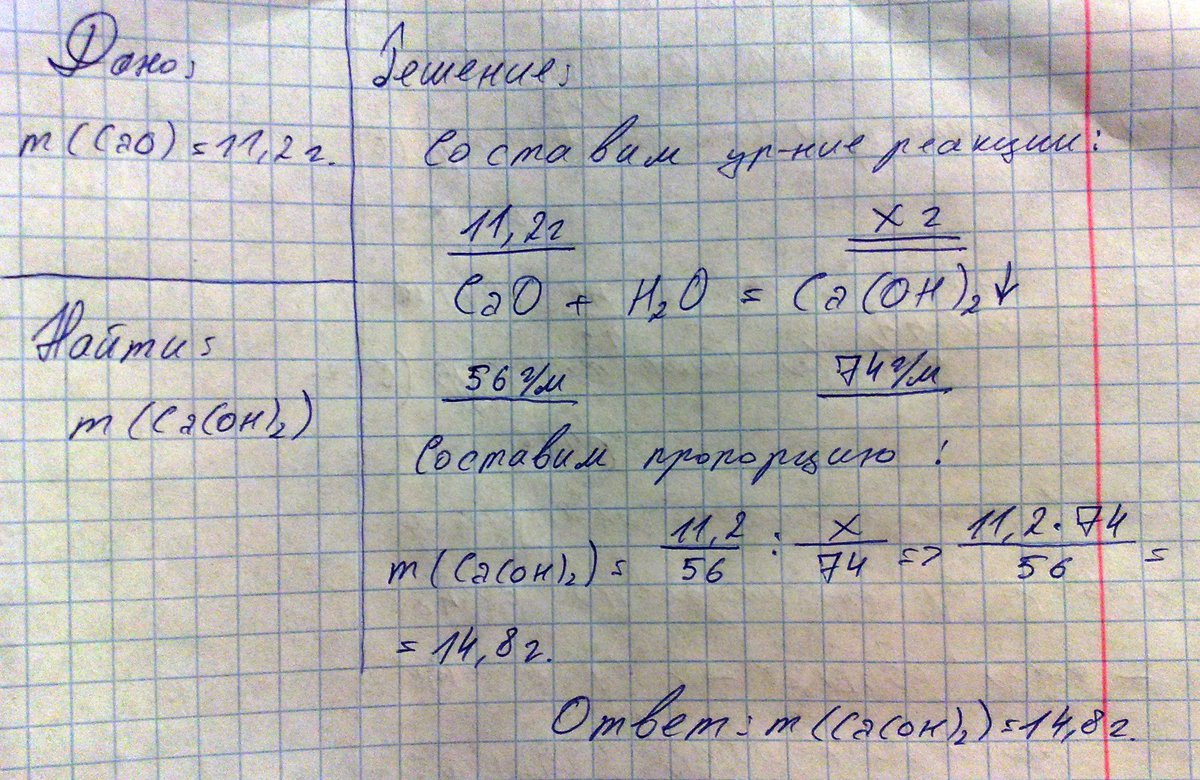 Дано:
m(CaO) = 11,2 г.
Найти:
m(Ca(OH)₂)
Решение:
Составим ур-ние реакции:
11,2г x г
CaO + H₂O = Ca(OH)₂↓
56 г/м 74 г/м
Составим пропорцию:
m(Ca(OH)₂) = 11,2/56 : x/74 => 11,2·74/56 =
= 14,8 г.
Ответ: m(Ca(OH)₂) = 14,8 г.